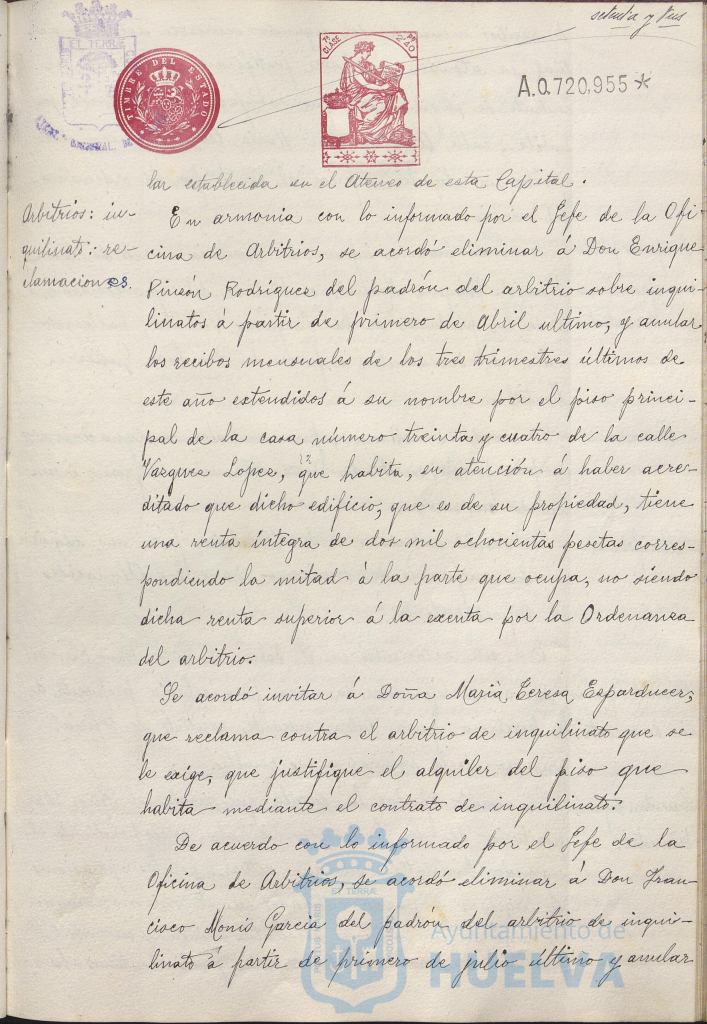 setenta y tres
EL TERRÆ
TIMBRE DEL ESTADO
7ª CLASE
PP 2'40
A.0.720,955*
lar establecida en el Ateneo de esta Capital.
Arbitrios: in-
quilinato: re-
clamaciones.
En armonia con lo informado por el Jefe de la Ofi-
cina de Arbitrios, se acordó eliminar á Don Enrique
Pinzón Rodríguez del padrón del arbitrio sobre inqui-
linatos á partir de primero de Abril ultimo, y anular
los recibos mensuales de los tres trimestres últimos de
este año extendidos á su nombre por el piso princi-
pal de la casa número treinta y cuatro de la calle
Vazquez Lopez, que habita, en atención á haber acre-
ditado que dicho edificio, que es de su propiedad, tiene
una renta íntegra de dos mil ochocientas pesetas corres-
pondiendo la mitad á la parte que ocupa, no siendo
dicha renta superior á la exenta por la Ordenanza
del arbitrio.
Se acordó invitar á Doña Maria Teresa Esparducer,
que reclama contra el arbitrio de inquilinato que se
le exige, que justifique el alquiler del piso que
habita mediante el contrato de inquilinato.
De acuerdo con lo informado por el Jefe de la
Oficina de Arbitrios, se acordó eliminar á Don Fran-
cisco Monís García del padrón del arbitrio de inqui-
linato á partir de primero de julio último y anular
Ayuntamiento de
HUELVA